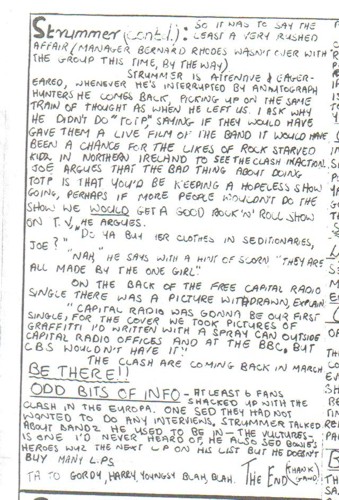 Strummer (Contd.): SO IT WAS TO SAY THE
LEAST A VERY RUSHED
AFFAIR (MANAGER BERNARD RHODES WASN'T OVER WITH
THE GROUP THIS TIME, BY THE WAY)
STRUMMER IS ATTENTIVE & EAGER-
EARED, WHENEVER HE'S INTERRUPTED BY AN AUTOGRAPH
HUNTERS HE COMES BACK, PICKING UP ON THE SAME
TRAIN OF THOUGHT AS WHEN HE LEFT US. I ASK WHY
HE DIDN'T DO "TOTP" SAYING IF THEY WOULD HAVE
GAVE THEM A LIVE FILM OF THE BAND IT WOULD HAVE
BEEN A CHANCE FOR THE LIKES OF ROCK STARVED
KIDZ IN NORTHERN IRELAND TO SEE THE CLASH IN ACTION.
JOE ARGUES THAT THE BAD THING ABOUT DOING
TOTP IS THAT YOU'D BE KEEPING A HOPELESS SHOW
GOING, PERHAPS IF MORE PEOPLE WOULDN'T DO THE
SHOW WE WOULD GET A GOOD ROCK 'N' ROLL SHOW
ON T.V., HE ARGUES.
"DO YA BUY YER CLOTHES IN SEDITIONARIES,
JOE?"
"NAH," HE SAYS WITH A HINT OF SCORN "THEY ARE
ALL MADE BY THE ONE GIRL"
ON THE BACK OF THE FREE CAPITAL RADIO
SINGLE THERE WAS A PICTURE WITHDRAWN, EXPLAIN
"CAPITAL RADIO WAS GONNA BE OUR FIRST
SINGLE, FOR THE COVER WE TOOK PICTURES OF
GRAFFITTI I'D WRITTEN WITH A SPRAY CAN OUTSIDE
CAPITAL RADIO OFFICES AND AT THE BBC, BUT
CBS WOULDN'T HAVE IT"
THE CLASH ARE COMING BACK IN MARCH
BE THERE!!
ODD BITS OF INFO - AT LEAST 6 FANS
SHACKED UP WITH THE
CLASH IN THE EUROPA. ONE SED THEY HAD NOT
WANTED TO DO ANY INTERVIEWS, STRUMMER TALKED
ABOUT BANDZ HE USED TO BE IN - THE VULTURES -
IS ONE I'D NEVER HEARD OF, HE ALSO SED BOWIE'S
HEROES WUZ THE NEXT LP ON HIS LIST BUT HE DOESN'T
BUY MANY L.PS
TA TO GORDY, HARRY, YOUNGSY BLAH, BLAH. THE END (THANK GAWD!